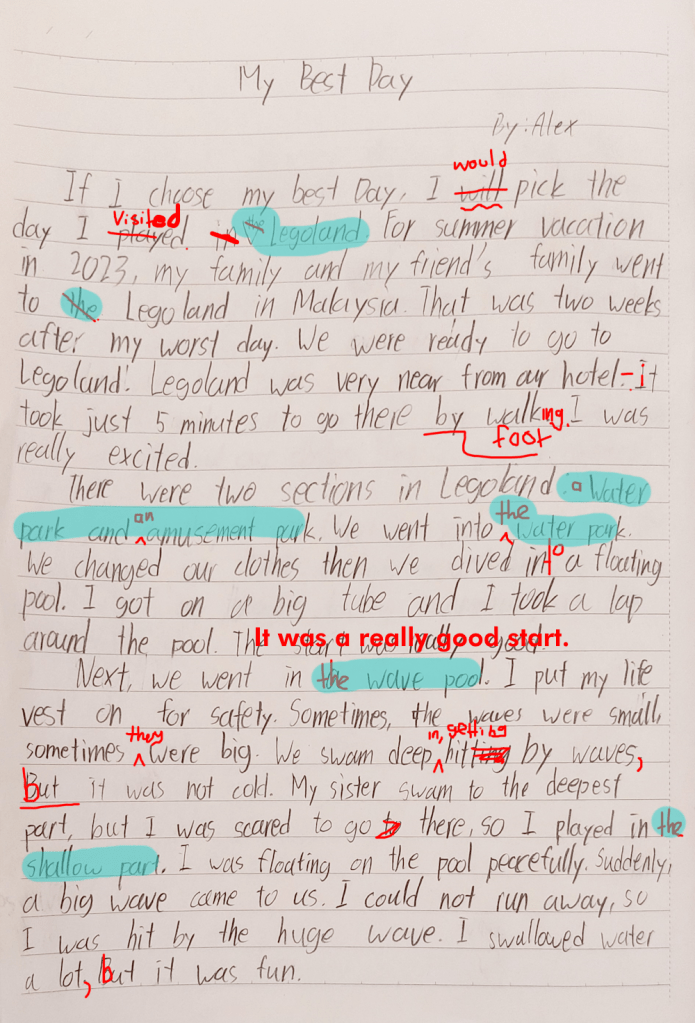 My Best Day
By: Alex
would
If I choose my best Day, I will pick the
Visited
day I played in the Legoland For summer vacation
in 2023, my family and my friend's family went
to the Lego land in Malaysia. That was two weeks
after my worst day. We were ready to go to
Legoland! Legoland was very near from our hotel-it
took just 5 minutes to go there by walking. I was
foot
really excited.
There were two sections in Legoland: a Water
an
the
park and amusement park. We went into water park.
We changed our clothes then we dived into a floating
pool. I got on a big tube and I took a lap
around the pool. It was a really good start.
Next, we went in the wave pool. I put my life
vest on for safety. Sometimes, the waves were small,
they
in, getting
sometimes were big. We swam deep hitting by waves,
but it was not cold. My sister swam to the deepest
part, but I was scared to go to there, so I played in the
shallow part. I was floating on the pool peacefully. Suddenly,
a big wave came to us. I could not run away, so
I was hit by the huge wave. I swallowed water
a lot, but it was fun.